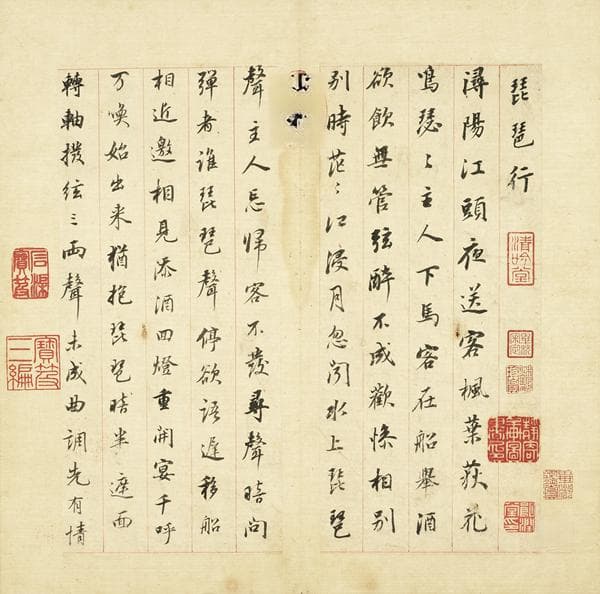 琵琶行
潯陽江頭夜送客楓葉荻花
鳴瑟〻主人下馬客在船舉酒
欲飲無管弦醉不成歡慘相別
別時茫〻江浸月忽聞水上琵琶
聲主人忘歸客不發尋聲暗問
彈者誰琵琶聲停欲語遲移船
相近邀相見添酒回燈重開宴千呼
万喚始出来猶抱琵琶暗半遮面
轉軸撥弦三兩聲未成曲調先有情
清吟堂
石渠寶笈
寶笈三編